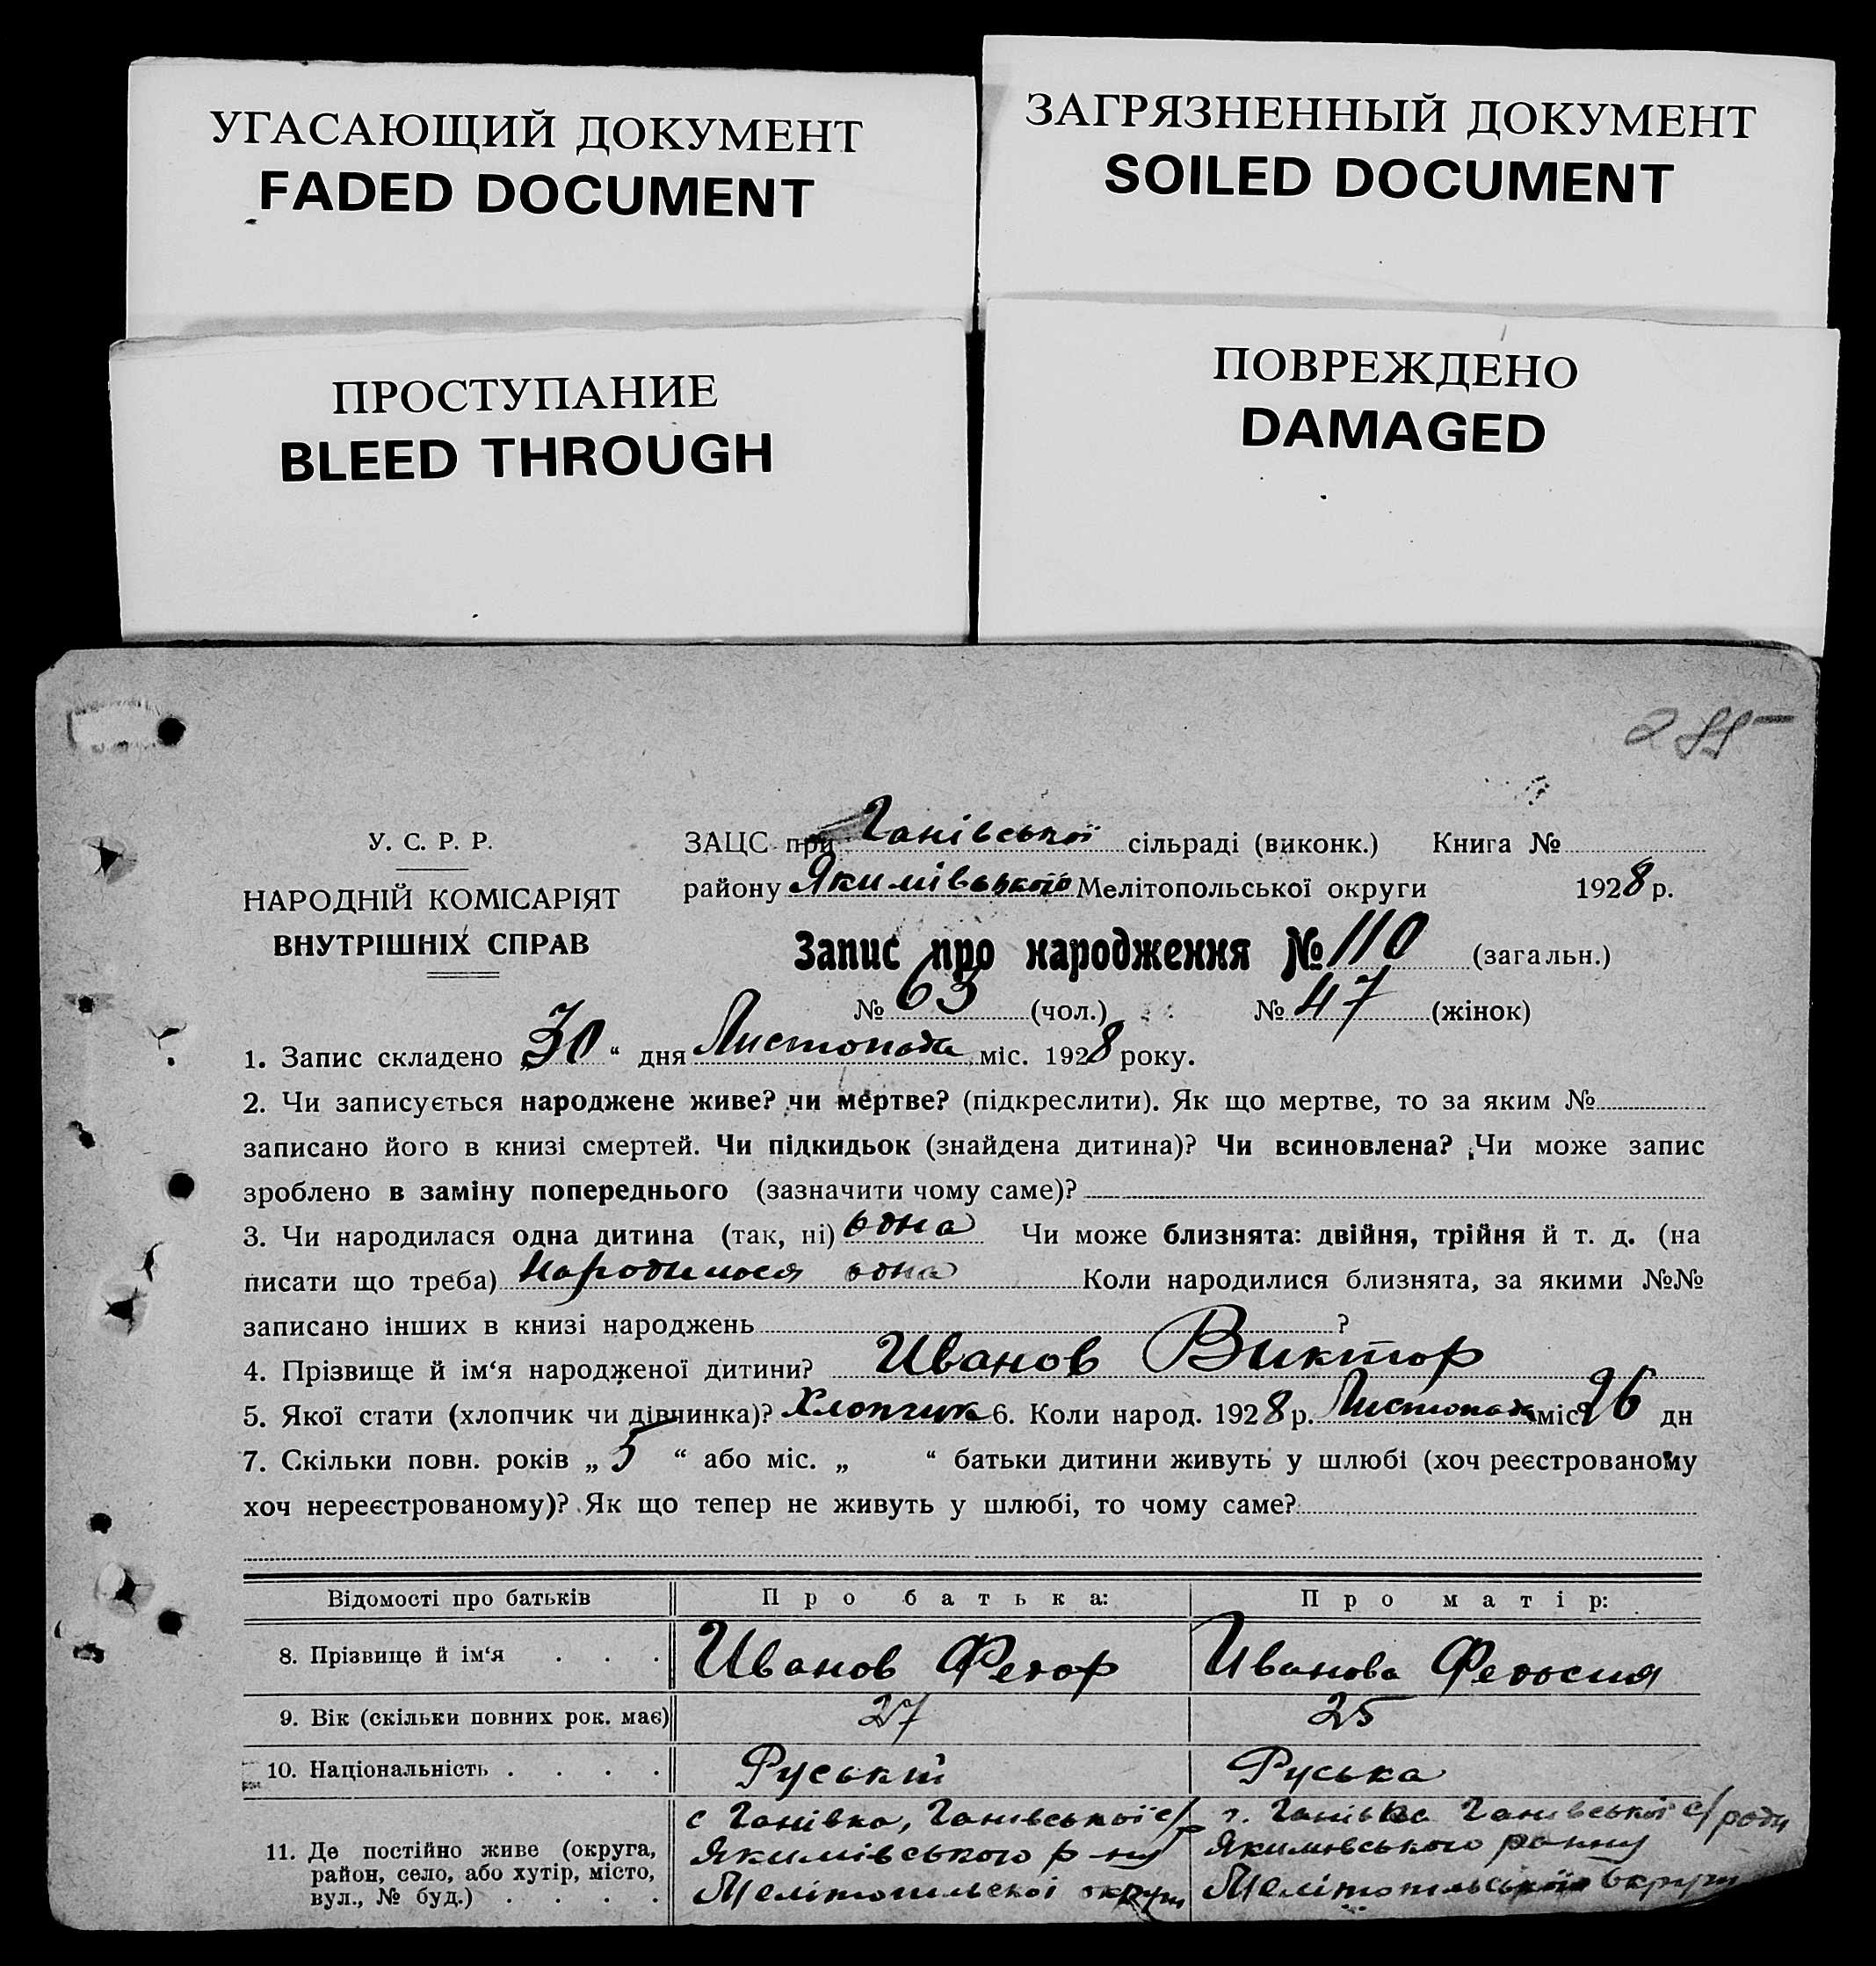 УГАСАЮЩИЙ ДОКУМЕНТ
FADED DOCUMENT
ЗАГРЯЗНЕННЫЙ ДОКУМЕНТ
SOILED DOCUMENT
ПРОСТУПАНИЕ
BLEED THROUGH
ПОВРЕЖДЕНО
DAMAGED
У. С. Р. Р.
НАРОДНІЙ КОМІСАРІЯТ
ВНУТРІШНІХ СПРАВ
ЗАЦС при Ганівської сільраді (виконк.) Книга №
району Якимівського Мелітопольської округи 1928 р.
Запис про народження № 110 (загальн.)
№ 63 (чол.) № 47 (жінок)
1. Запис складено „30“ дня Листопада міс. 1928 року.
2. Чи записується народжене живе? чи мертве? (підкреслити). Як що мертве, то за яким №
записано його в книзі смертей. Чи підкидьок (знайдена дитина)? Чи всиновлена? Чи може запис
зроблено в заміну попереднього (зазначити чому саме)?
3. Чи народилася одна дитина (так, ні) одна Чи може близнята: двійня, трійня й т. д. (на
писати що треба) Народилося одна Коли народилися близнята, за якими №№
записано інших в книзі народжень ?
4. Прізвище й ім‘я народженої дитини? Иванов Виктор
5. Якої стати (хлопчик чи дівчинка)? Хлопчик 6. Коли народ. 1928 р. Листопада міс. 26 дн
7. Скільки повн. років „ 5 “ або міс. „ “ батьки дитини живуть у шлюбі (хоч реєстрованому
хоч нереєстрованому)? Як що тепер не живуть у шлюбі, то чому саме?
Відомості про батьків Про батька: Про матір:
8. Прізвище й ім‘я . . . Иванов Федор Иванова Федосия
9. Вік (скільки повних рок. має) 27 25
10. Національність . . . . Руський Руська
11. Де постійно живе (округа,
район, село, або хутір, місто,
вул., № буд.) . . . .
с Ганівка, Ганівської с/р
Якимівського р-ну
Мелітопильскої округи
Ганівка Ганівської с/ради
Якимівського району
Мелітопильської округи